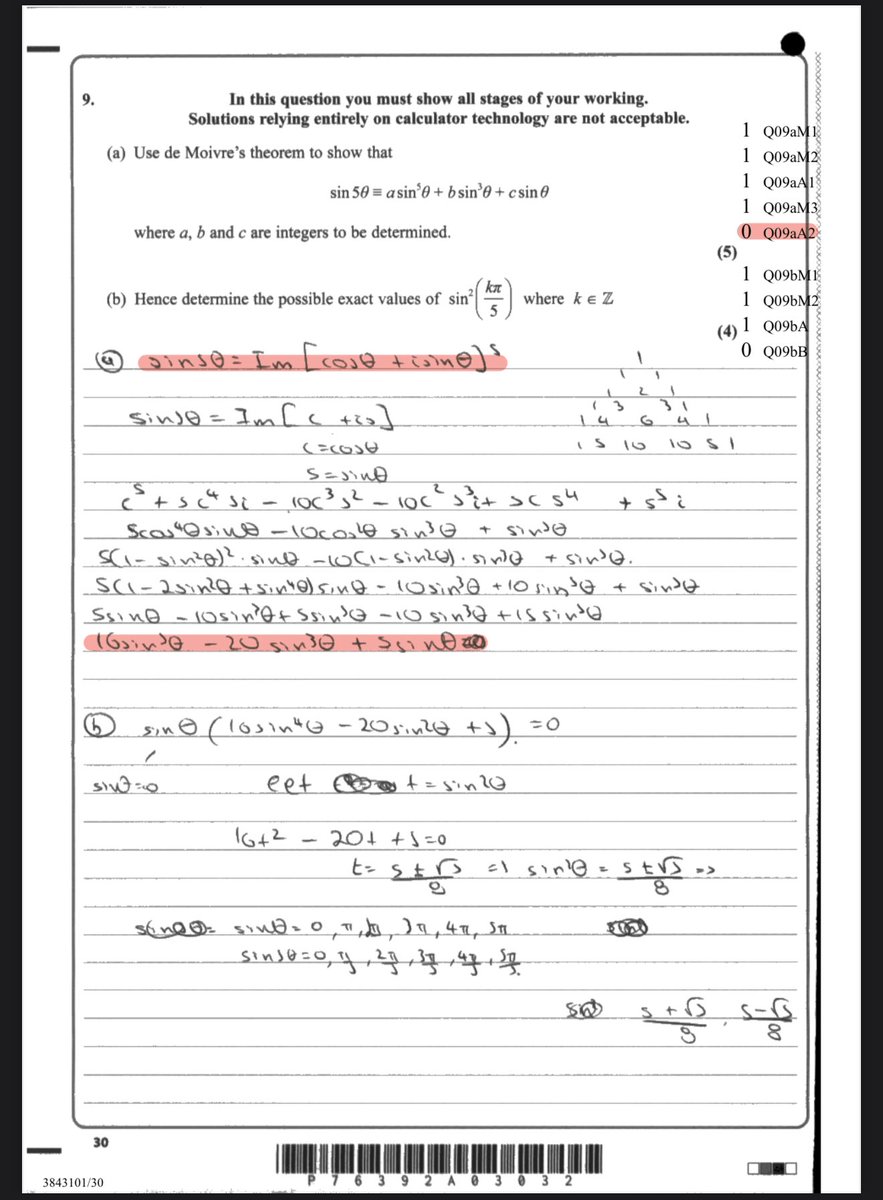 9. In this question you must show all stages of your working.
Solutions relying entirely on calculator technology are not acceptable.
(a) Use de Moivre's theorem to show that
sin 5θ ≡ a sin⁵θ + b sin³θ + c sin θ
where a, b and c are integers to be determined.
(5)
(b) Hence determine the possible exact values of sin²(kπ/5) where k ∈ ℤ
(4)
1 Q09aM1
1 Q09aM2
1 Q09aA1
1 Q09aM3
0 Q09aA2
1 Q09bM1
1 Q09bM2
1 Q09bA
0 Q09bB
(a) sin5θ = Im [cosθ + isinθ]⁵
1
1 1
1 2 1
1 3 3 1
1 4 6 4 1
1 5 10 10 5 1
sin5θ = Im [c + is]
c = cosθ
s = sinθ
c⁵ + 5c⁴si - 10c³s² - 10c²s³i + 5cs⁴ + s⁵i
5cos⁴θsinθ - 10cos²θ sin³θ + sin⁵θ
5(1 - sin²θ)² · sinθ - 10(1 - sin²θ) · sin³θ + sin⁵θ.
5(1 - 2sin²θ + sin⁴θ) sinθ - 10sin³θ + 10sin⁵θ + sin⁵θ
5sinθ - 10sin³θ + 5sin⁵θ - 10sin³θ + 11sin⁵θ
16sin⁵θ - 20sin³θ + 5sinθ
(b) sinθ (16sin⁴θ - 20sin²θ + 5). = 0
sinθ = 0 let t = sin²θ
16t² - 20t + 5 = 0
t = (5 ± √5)/8 => sin²θ = (5 ± √5)/8 =>
sinθ = 0, π, 2π, 3π, 4π, 5π
sin5θ = 0, π/5, 2π/5, 3π/5, 4π/5, 5π/5.
(5 + √5)/8, (5 - √5)/8
30
P76392A03032
3843101/30